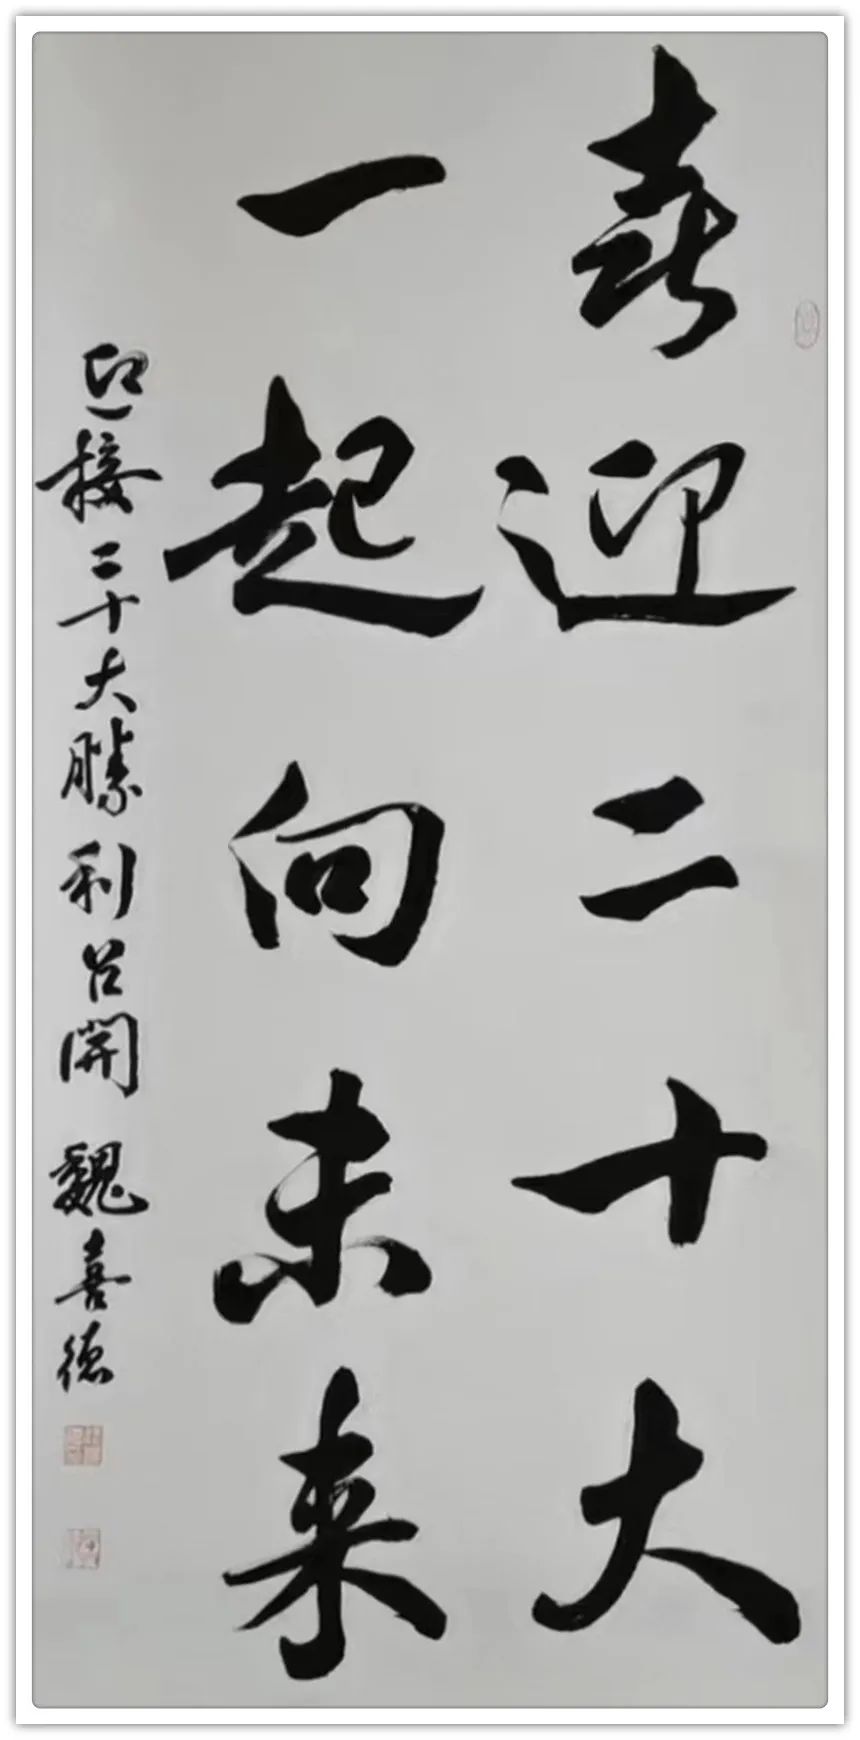 喜迎二十大
一起向未来
迎接二十大勝利召開 魏喜德